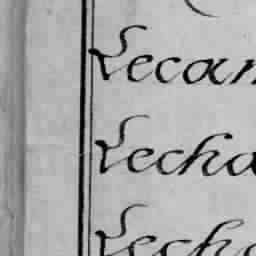 Lecan
Lecha
Lecha